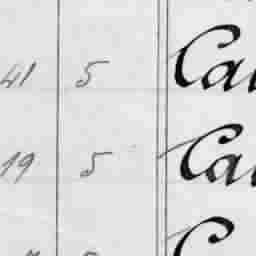 41 5 Ca
19 5 Ca
5 C